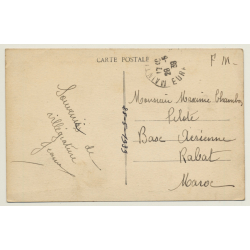 CARTE POSTALE
F M.
Souvenir de
villégiature
Jeanne
Monsieur Maxime Chambon
Pilote
Base Aérienne
Rabat
Maroc